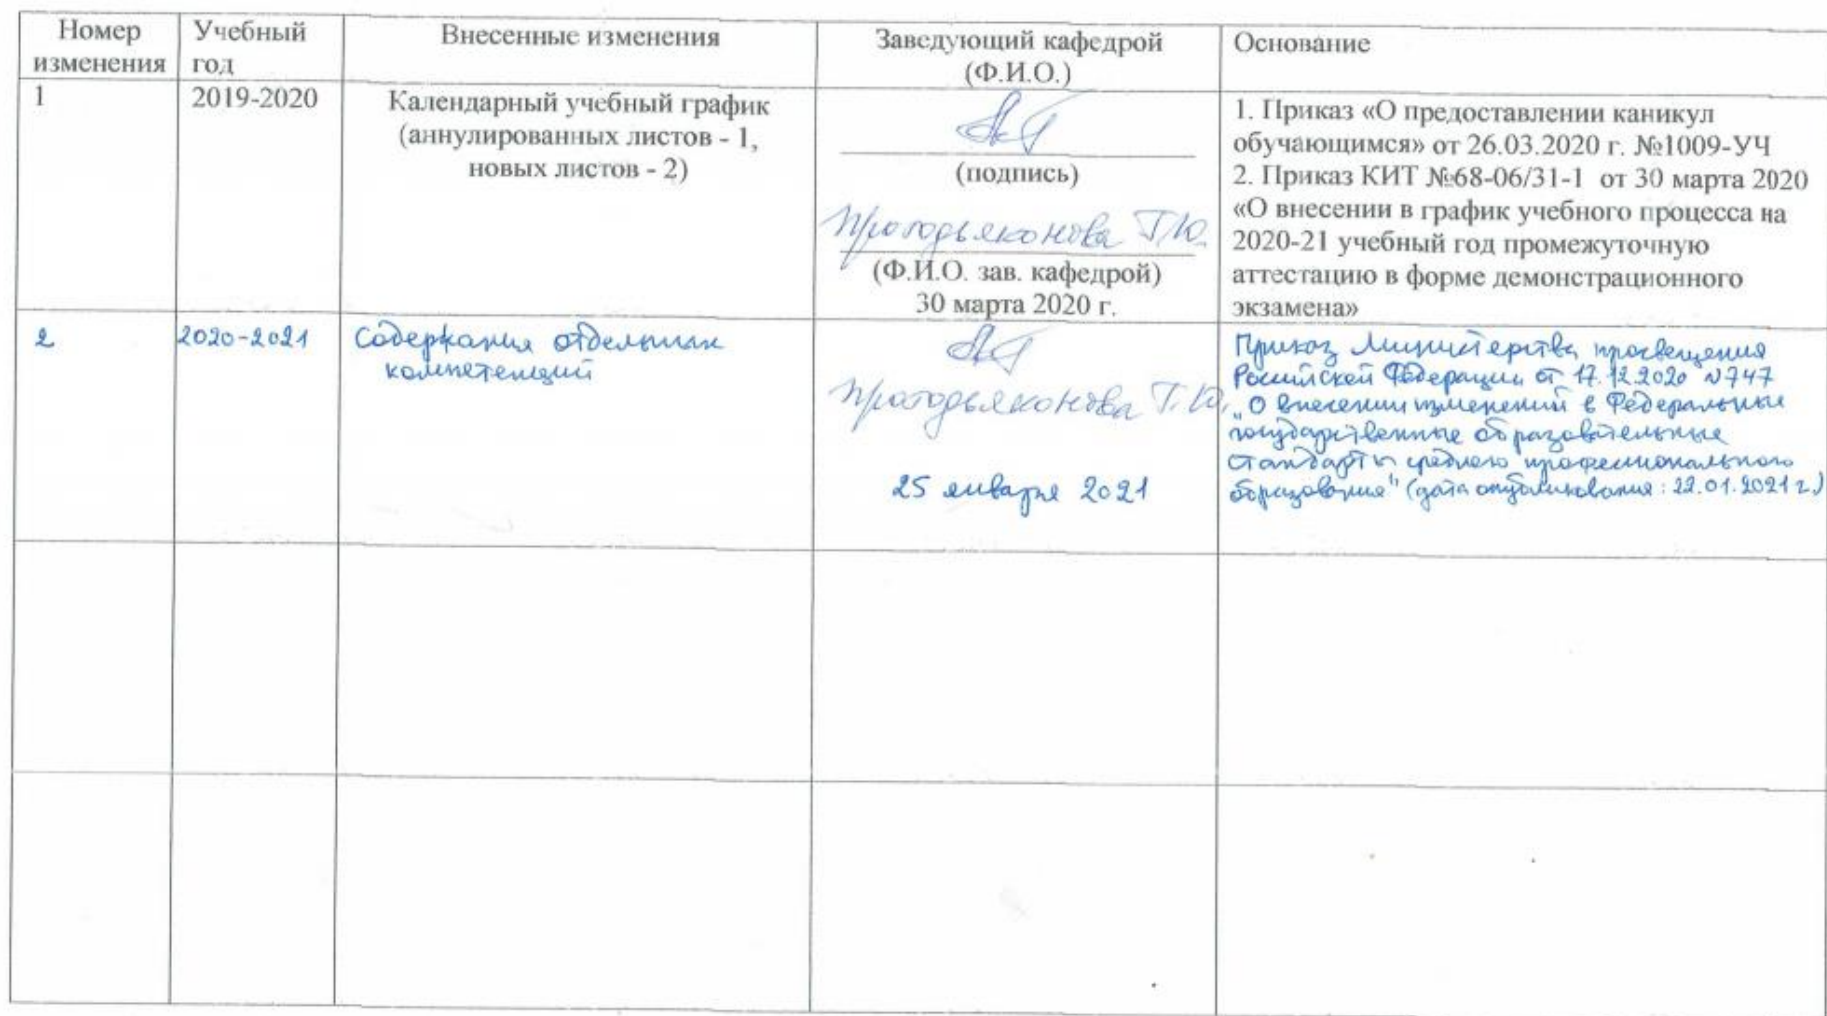 Номер изменения
Учебный год
Внесенные изменения
Заведующий кафедрой (Ф.И.О.)
Основание
1
2019-2020
Календарный учебный график
(аннулированных листов - 1,
новых листов - 2)
(подпись)
Протодьяконова Г.Ю.
(Ф.И.О. зав. кафедрой)
30 марта 2020 г.
1. Приказ «О предоставлении каникул
обучающимся» от 26.03.2020 г. №1009-УЧ
2. Приказ КИТ №68-06/31-1 от 30 марта 2020
«О внесении в график учебного процесса на
2020-21 учебный год промежуточную
аттестацию в форме демонстрационного
экзамена»
2
2020-2021
Содержания отдельных
компетенций
Протодьяконова Г.Ю.
25 января 2021
Приказ Министерства просвещения
Российской Федерации от 17.12.2020 N747
„О внесении изменений в Федеральные
государственные образовательные
стандарты среднего профессионального
образования" (дата опубликования: 22.01.2021 г.)